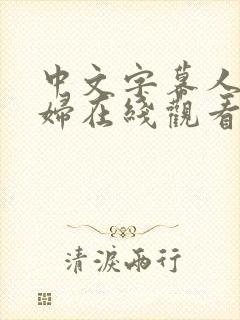 中文字幕人
婦在綫觀看
清淚兩行